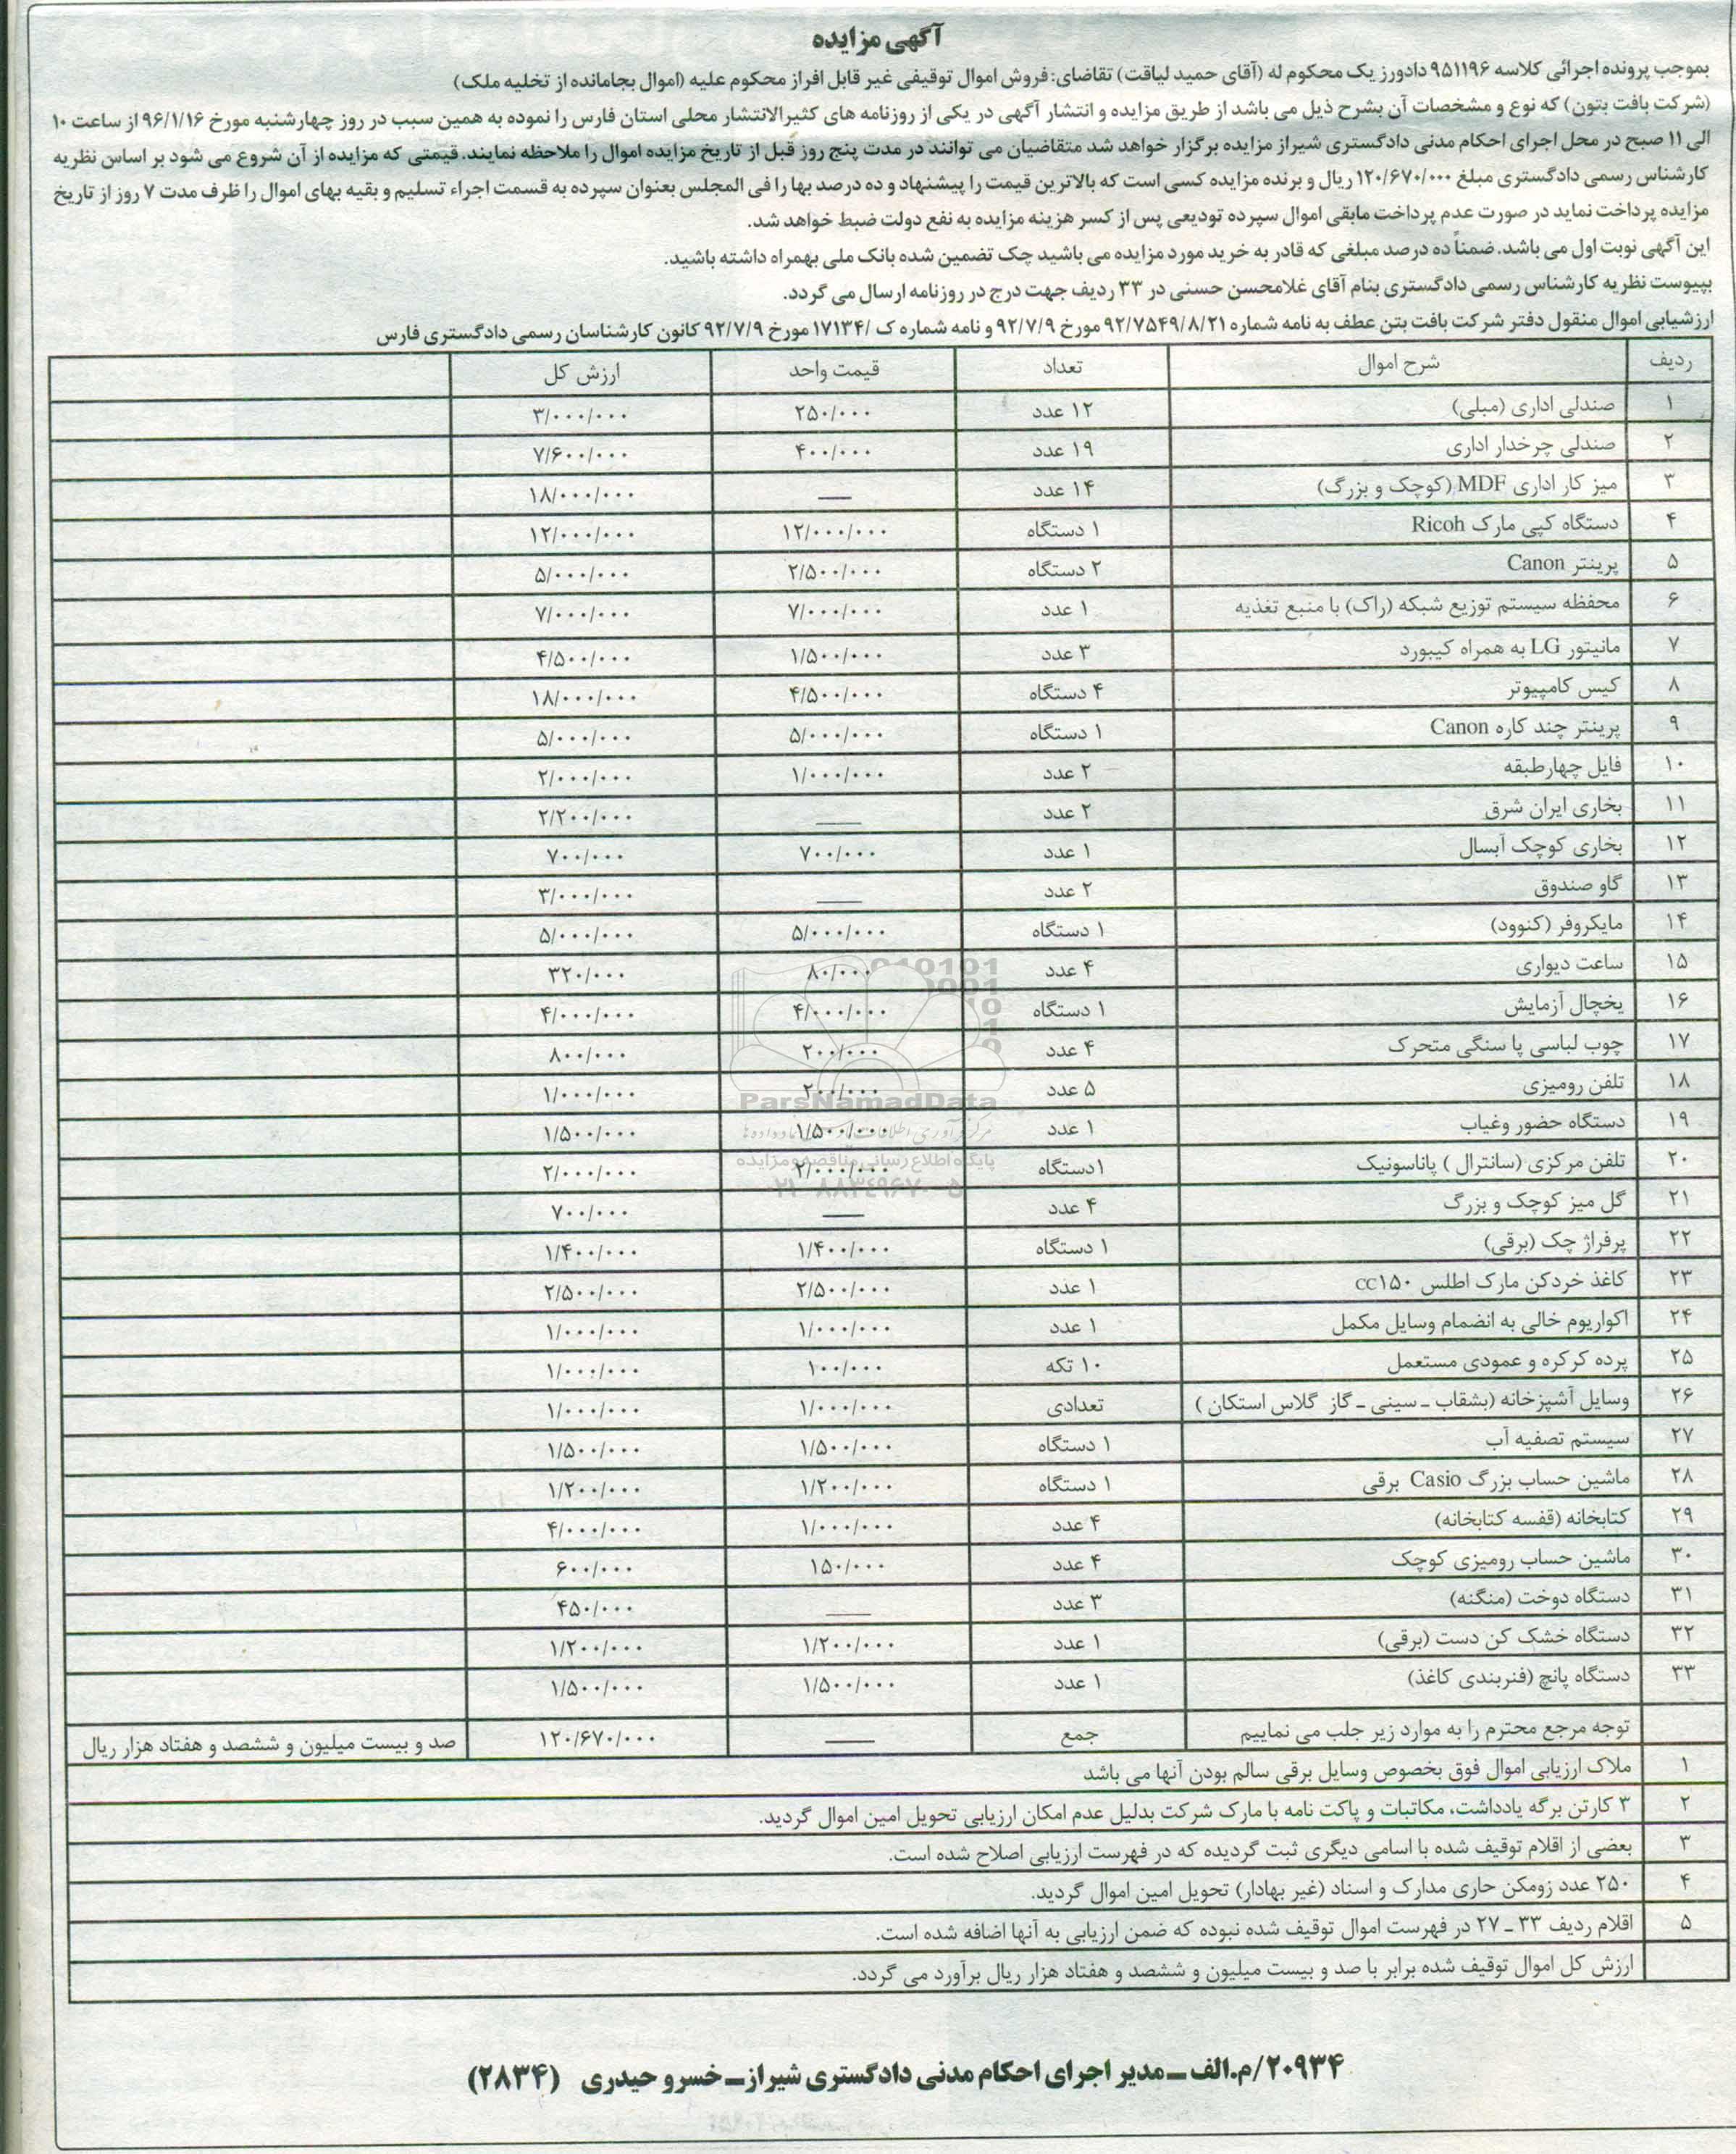 آگهی مزایده
بموجب پرونده اجرائی کلاسه ۹۵۱۱۹۶ دادورز یک محکوم له (آقای حمید لیاقت) تقاضای: فروش اموال توقیفی غیر قابل افراز محکوم علیه (اموال بجامانده از تخلیه ملک)
(شرکت بافت بتون) که نوع و مشخصات آن بشرح ذیل می باشد از طریق مزایده و انتشار آگهی در یکی از روزنامه های کثیرالانتشار محلی استان فارس را نموده به همین سبب در روز چهارشنبه مورخ ۹۶/۱/۱۶ از ساعت ۱۰
الی ۱۱ صبح در محل اجرای احکام مدنی دادگستری شیراز مزایده برگزار خواهد شد متقاضیان می توانند در مدت پنج روز قبل از تاریخ مزایده اموال را ملاحظه نمایند. قیمتی که مزایده از آن شروع می شود بر اساس نظریه
کارشناس رسمی دادگستری مبلغ ۱۲۰/۶۷۰/۰۰۰ ریال و برنده مزایده کسی است که بالاترین قیمت را پیشنهاد و ده درصد بها را فی المجلس بعنوان سپرده به قسمت اجراء تسلیم و بقیه بهای اموال را ظرف مدت ۷ روز از تاریخ
مزایده پرداخت نماید در صورت عدم پرداخت مابقی اموال سپرده تودیعی پس از کسر هزینه مزایده به نفع دولت ضبط خواهد شد.
این آگهی نوبت اول می باشد. ضمناً ده درصد مبلغی که قادر به خرید مورد مزایده می باشید چک تضمین شده بانک ملی بهمراه داشته باشید.
بپیوست نظریه کارشناس رسمی دادگستری بنام آقای غلامحسن حسنی در ۳۳ ردیف جهت درج در روزنامه ارسال می گردد.
ارزشیابی اموال منقول دفتر شرکت بافت بتن عطف به نامه شماره ۹۲/۷۵۴۹/۸/۲۱ مورخ ۹۲/۷/۹ و نامه شماره ک /۱۷۱۳۴ مورخ ۹۲/۷/۹ کانون کارشناسان رسمی دادگستری فارس
ردیف شرح اموال تعداد قیمت واحد ارزش کل
۱ صندلی اداری (مبلی) ۱۲ عدد ۲۵۰/۰۰۰ ۳/۰۰۰/۰۰۰
۲ صندلی چرخدار اداری ۱۹ عدد ۴۰۰/۰۰۰ ۷/۶۰۰/۰۰۰
۳ میز کار اداری MDF (کوچک و بزرگ) ۱۴ عدد — ۱۸/۰۰۰/۰۰۰
۴ دستگاه کپی مارک Ricoh ۱ دستگاه ۱۲/۰۰۰/۰۰۰ ۱۲/۰۰۰/۰۰۰
۵ پرینتر Canon ۲ دستگاه ۲/۵۰۰/۰۰۰ ۵/۰۰۰/۰۰۰
۶ محفظه سیستم توزیع شبکه (راک) با منبع تغذیه ۱ عدد ۷/۰۰۰/۰۰۰ ۷/۰۰۰/۰۰۰
۷ مانیتور LG به همراه کیبورد ۳ عدد ۱/۵۰۰/۰۰۰ ۴/۵۰۰/۰۰۰
۸ کیس کامپیوتر ۴ دستگاه ۴/۵۰۰/۰۰۰ ۱۸/۰۰۰/۰۰۰
۹ پرینتر چند کاره Canon ۱ دستگاه ۵/۰۰۰/۰۰۰ ۵/۰۰۰/۰۰۰
۱۰ فایل چهارطبقه ۲ عدد ۱/۰۰۰/۰۰۰ ۲/۰۰۰/۰۰۰
۱۱ بخاری ایران شرق ۲ عدد — ۲/۲۰۰/۰۰۰
۱۲ بخاری کوچک آبسال ۱ عدد ۷۰۰/۰۰۰ ۷۰۰/۰۰۰
۱۳ گاو صندوق ۲ عدد — ۳/۰۰۰/۰۰۰
۱۴ مایکروفر (کنوود) ۱ دستگاه ۵/۰۰۰/۰۰۰ ۵/۰۰۰/۰۰۰
۱۵ ساعت دیواری ۴ عدد ۸۰/۰۰۰ ۳۲۰/۰۰۰
۱۶ یخچال آزمایش ۱ دستگاه ۴/۰۰۰/۰۰۰ ۴/۰۰۰/۰۰۰
۱۷ چوب لباسی پا سنگی متحرک ۴ عدد ۲۰۰/۰۰۰ ۸۰۰/۰۰۰
۱۸ تلفن رومیزی ۵ عدد ۲۰۰/۰۰۰ ۱/۰۰۰/۰۰۰
۱۹ دستگاه حضور وغیاب ۱ عدد ۱/۵۰۰/۰۰۰ ۱/۵۰۰/۰۰۰
۲۰ تلفن مرکزی (سانترال ) پاناسونیک ۱دستگاه ۲/۰۰۰/۰۰۰ ۲/۰۰۰/۰۰۰
۲۱ گل میز کوچک و بزرگ ۴ عدد — ۷۰۰/۰۰۰
۲۲ پرفراژ چک (برقی) ۱ دستگاه ۱/۴۰۰/۰۰۰ ۱/۴۰۰/۰۰۰
۲۳ کاغذ خردکن مارک اطلس cc۱۵۰ ۱ عدد ۲/۵۰۰/۰۰۰ ۲/۵۰۰/۰۰۰
۲۴ اکواریوم خالی به انضمام وسایل مکمل ۱ عدد ۱/۰۰۰/۰۰۰ ۱/۰۰۰/۰۰۰
۲۵ پرده کرکره و عمودی مستعمل ۱۰ تکه ۱۰۰/۰۰۰ ۱/۰۰۰/۰۰۰
۲۶ وسایل آشپزخانه (بشقاب ـ سینی ـ گاز گلاس استکان ) تعدادی ۱/۰۰۰/۰۰۰ ۱/۰۰۰/۰۰۰
۲۷ سیستم تصفیه آب ۱ دستگاه ۱/۵۰۰/۰۰۰ ۱/۵۰۰/۰۰۰
۲۸ ماشین حساب بزرگ Casio برقی ۱ دستگاه ۱/۲۰۰/۰۰۰ ۱/۲۰۰/۰۰۰
۲۹ کتابخانه (قفسه کتابخانه) ۴ عدد ۱/۰۰۰/۰۰۰ ۴/۰۰۰/۰۰۰
۳۰ ماشین حساب رومیزی کوچک ۴ عدد ۱۵۰/۰۰۰ ۶۰۰/۰۰۰
۳۱ دستگاه دوخت (منگنه) ۳ عدد — ۴۵۰/۰۰۰
۳۲ دستگاه خشک کن دست (برقی) ۱ عدد ۱/۲۰۰/۰۰۰ ۱/۲۰۰/۰۰۰
۳۳ دستگاه پانچ (فنربندی کاغذ) ۱ عدد ۱/۵۰۰/۰۰۰ ۱/۵۰۰/۰۰۰
توجه مرجع محترم را به موارد زیر جلب می نماییم جمع — ۱۲۰/۶۷۰/۰۰۰ صد و بیست میلیون و ششصد و هفتاد هزار ریال
۱ ملاک ارزیابی اموال فوق بخصوص وسایل برقی سالم بودن آنها می باشد
۲ ۳ کارتن برگه یادداشت، مکاتبات و پاکت نامه با مارک شرکت بدلیل عدم امکان ارزیابی تحویل امین اموال گردید.
۳ بعضی از اقلام توقیف شده با اسامی دیگری ثبت گردیده که در فهرست ارزیابی اصلاح شده است.
۴ ۲۵۰ عدد زومکن حاری مدارک و اسناد (غیر بهادار) تحویل امین اموال گردید.
۵ اقلام ردیف ۳۳ ـ ۲۷ در فهرست اموال توقیف شده نبوده که ضمن ارزیابی به آنها اضافه شده است.
ارزش کل اموال توقیف شده برابر با صد و بیست میلیون و ششصد و هفتاد هزار ریال برآورد می گردد.
۲۰۹۳۴/م.الف ـ مدیر اجرای احکام مدنی دادگستری شیراز ـ خسرو حیدری (۲۸۳۴)
ParsNamadData
پایگاه اطلاع رسانی مناقصه و مزایده
۰۲۱-۸۸۳۴۹۶۷۰-۵